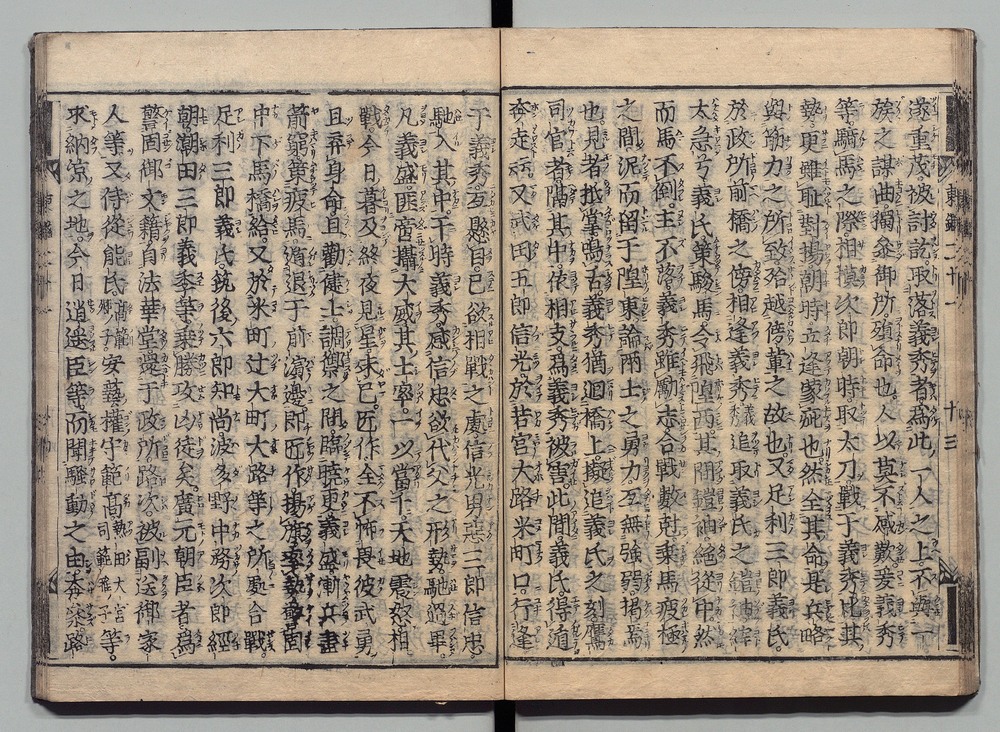 遂重茂被討訖取落義秀者爲此一人之上不與一
族之謀曲獨參御所殞命也人以莫不感歎爰義秀
等騎馬之際相摸次郎朝時取太刀戰于義秀比其
勢更雖耻對揚朝時立逢蒙疵也然全其命是兵略
與筋力之所致殆越傍輩之故也又足利三郎義氏
於政所前橋之傍相逢義秀義秀追取義氏之鎧袖
太急兮義氏策駿馬令飛隍西其間鎧袖絕從中然
而馬不倒主不落義秀雖勵志合戰數尅乘馬疲極
之間泥而留于隍東論兩士之勇力互無強弱揭焉
也見者抵掌鳴舌義秀猶迴橋上擬追義氏之刻鷹
司官者隔其中依相支爲義秀被害此間義氏得遁
奔走云云又武田五郎信光於若宮大路米町口行逢
于義秀互懸目已欲相戰之處信光男惡三郎信忠
馳入其中于時義秀感信忠欲代父之形勢馳過畢
凡義盛匪啻攝大威其士率一以當千天地震怒相
戰今日暮及終夜見星未已匠作全不怖畏彼武勇
且弃身命且勸健士調禦之間臨曉更義盛漸兵盡
箭窮策疲馬遁退于前濱邊即匠作揚旗率勢警固
中下馬橋給又於米町辻大町大路等之所處合戰
足利三郎義氏筑後六郎知尚波多野中務次郎經
朝潮田三郎義季等乘勝攻凶徒矣廣元朝臣者爲
警固御文籍自法華堂還于政所路次被副送御家
人等又侍從能氏安藝權守範高熱田大宮司範雅子等
求納涼之地今日逍遙臣等而聞騷動之由奔參路
東鑑二十一
十三